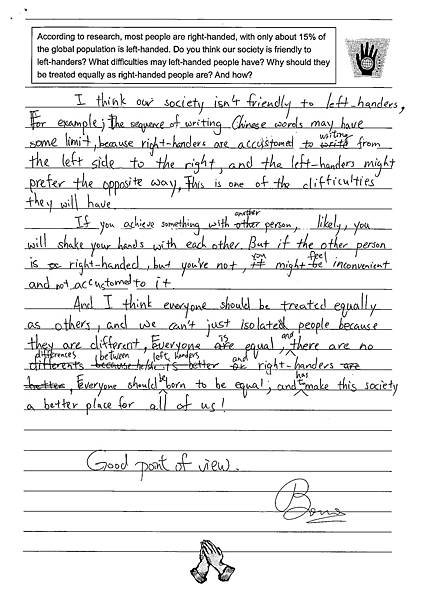 According to research, most people are right-handed, with only about 15% of
the global population is left-handed. Do you think our society is friendly to
left-handers? What difficulties may left-handed people have? Why should they
be treated equally as right-handed people are? And how?
I think our society isn't friendly to left-handers,
For example; The sequence of writing Chinese words may have
some limit, because right-handers are accustomed to write writing from
the left side to the right, and the left-handers might
prefer the opposite way, This is one of the difficulties
they will have.
If you achieve something with other another person, likely, you
will shake your hands with each other. But if the other person
is right-handed, but you're not, it you might be feel inconvenient
and not accustomed to it
And I think everyone should be treated equally
as others, and we can't just isolated people because
they are different, Everyone are is equal and there are no
differents differences because he/she is better between left handers or and right-handers are
better, Everyone should be born to be equal; and has to make this society
a better place for all of us!
Good point of view.